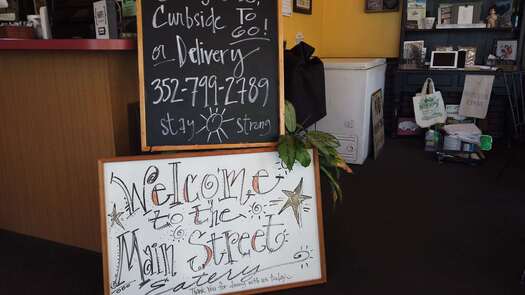 Curbside To
or Delivery GO!
352-799-2789
stay strong
Welcome
to the
Main Street
Eatery
Thank you for dining with us today!